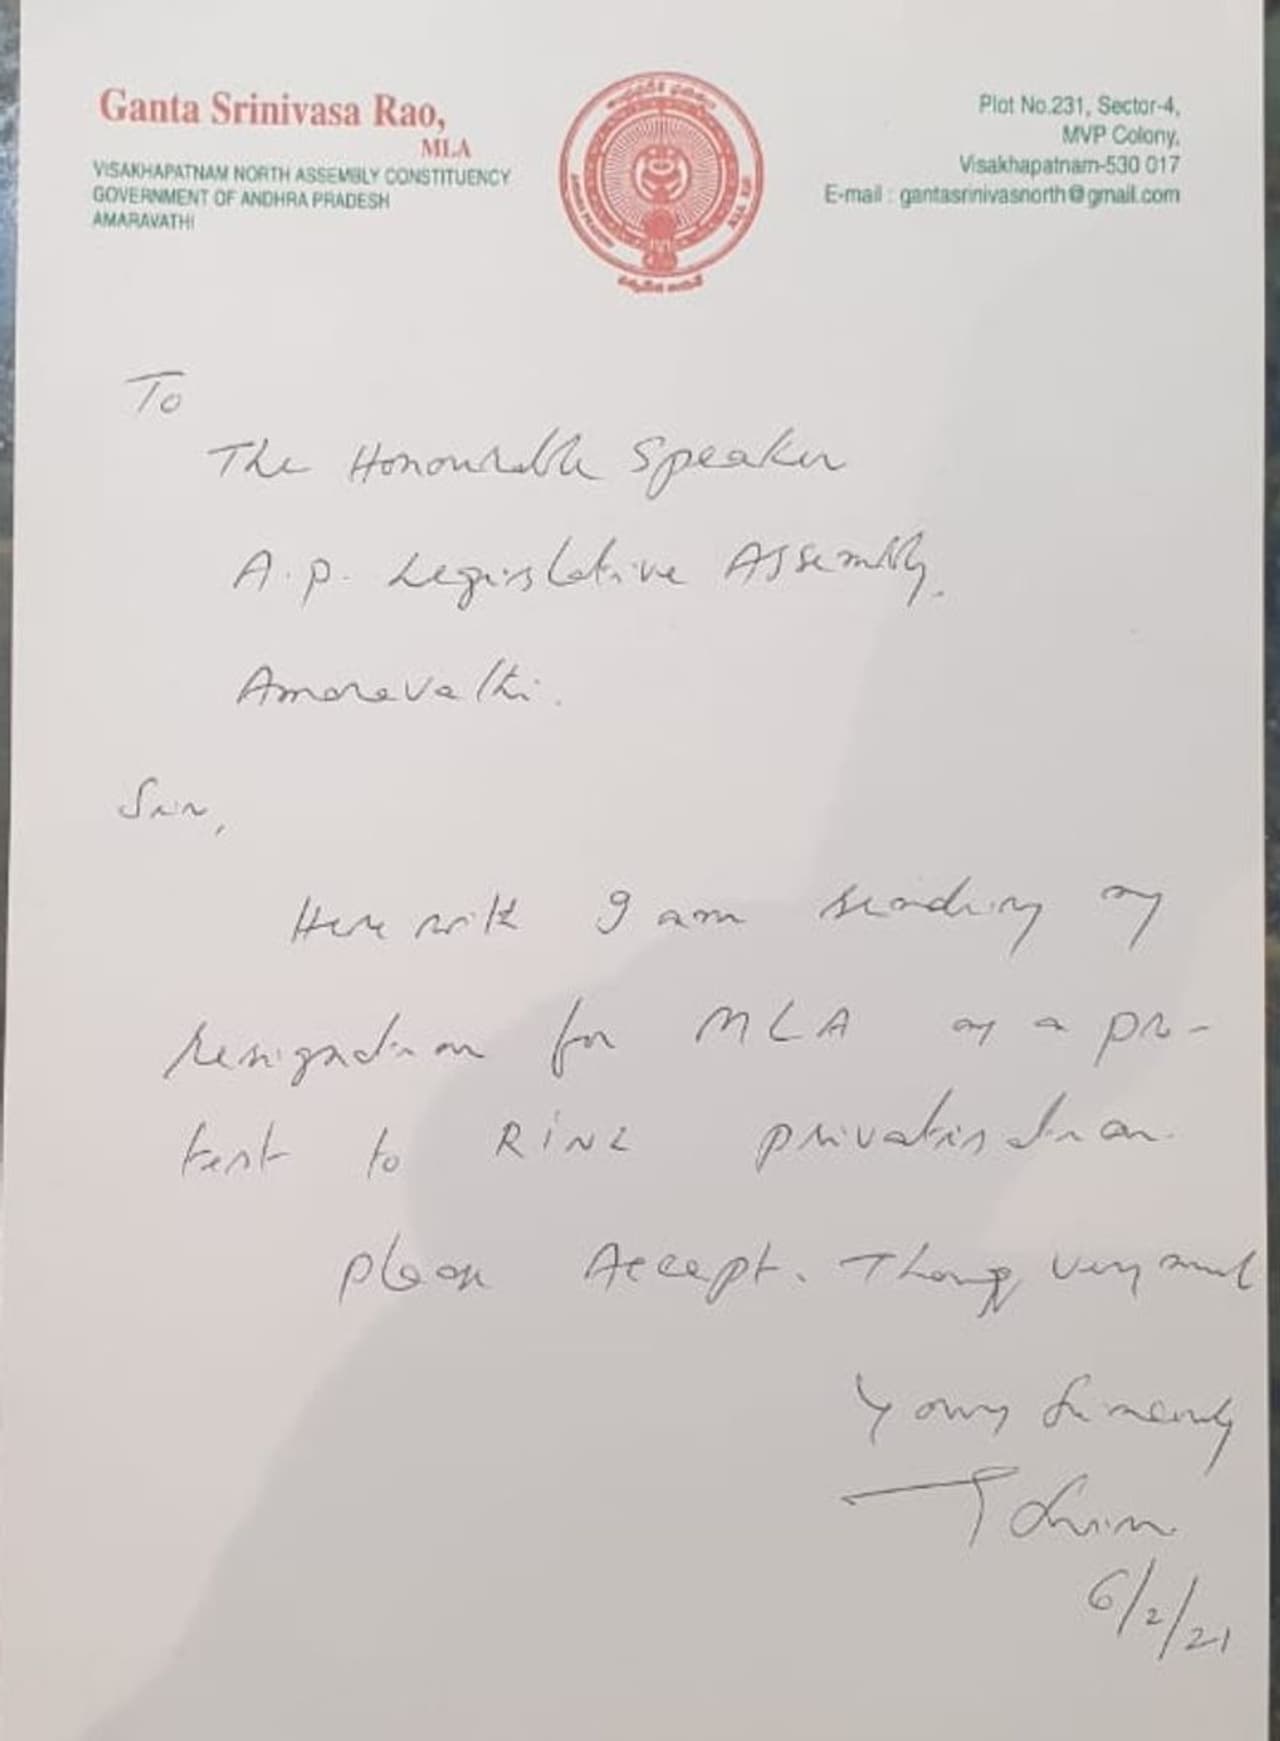 Ganta Srinivasa Rao,
MLA
VISAKHAPATNAM NORTH ASSEMBLY CONSTITUENCY
GOVERNMENT OF ANDHRA PRADESH
AMARAVATHI
Plot No.231, Sector-4,
MVP Colony,
Visakhapatnam-530 017
E-mail : gantasrinivasnorth@gmail.com
To
The Honourable Speaker
A.p. Legislative Assembly.
Amaravathi.
Sir,
Here with I am sending my
resignation for MLA as a pro-
test to RINL privatisation.
please Accept. very much
Yours Sincerely
6/2/21